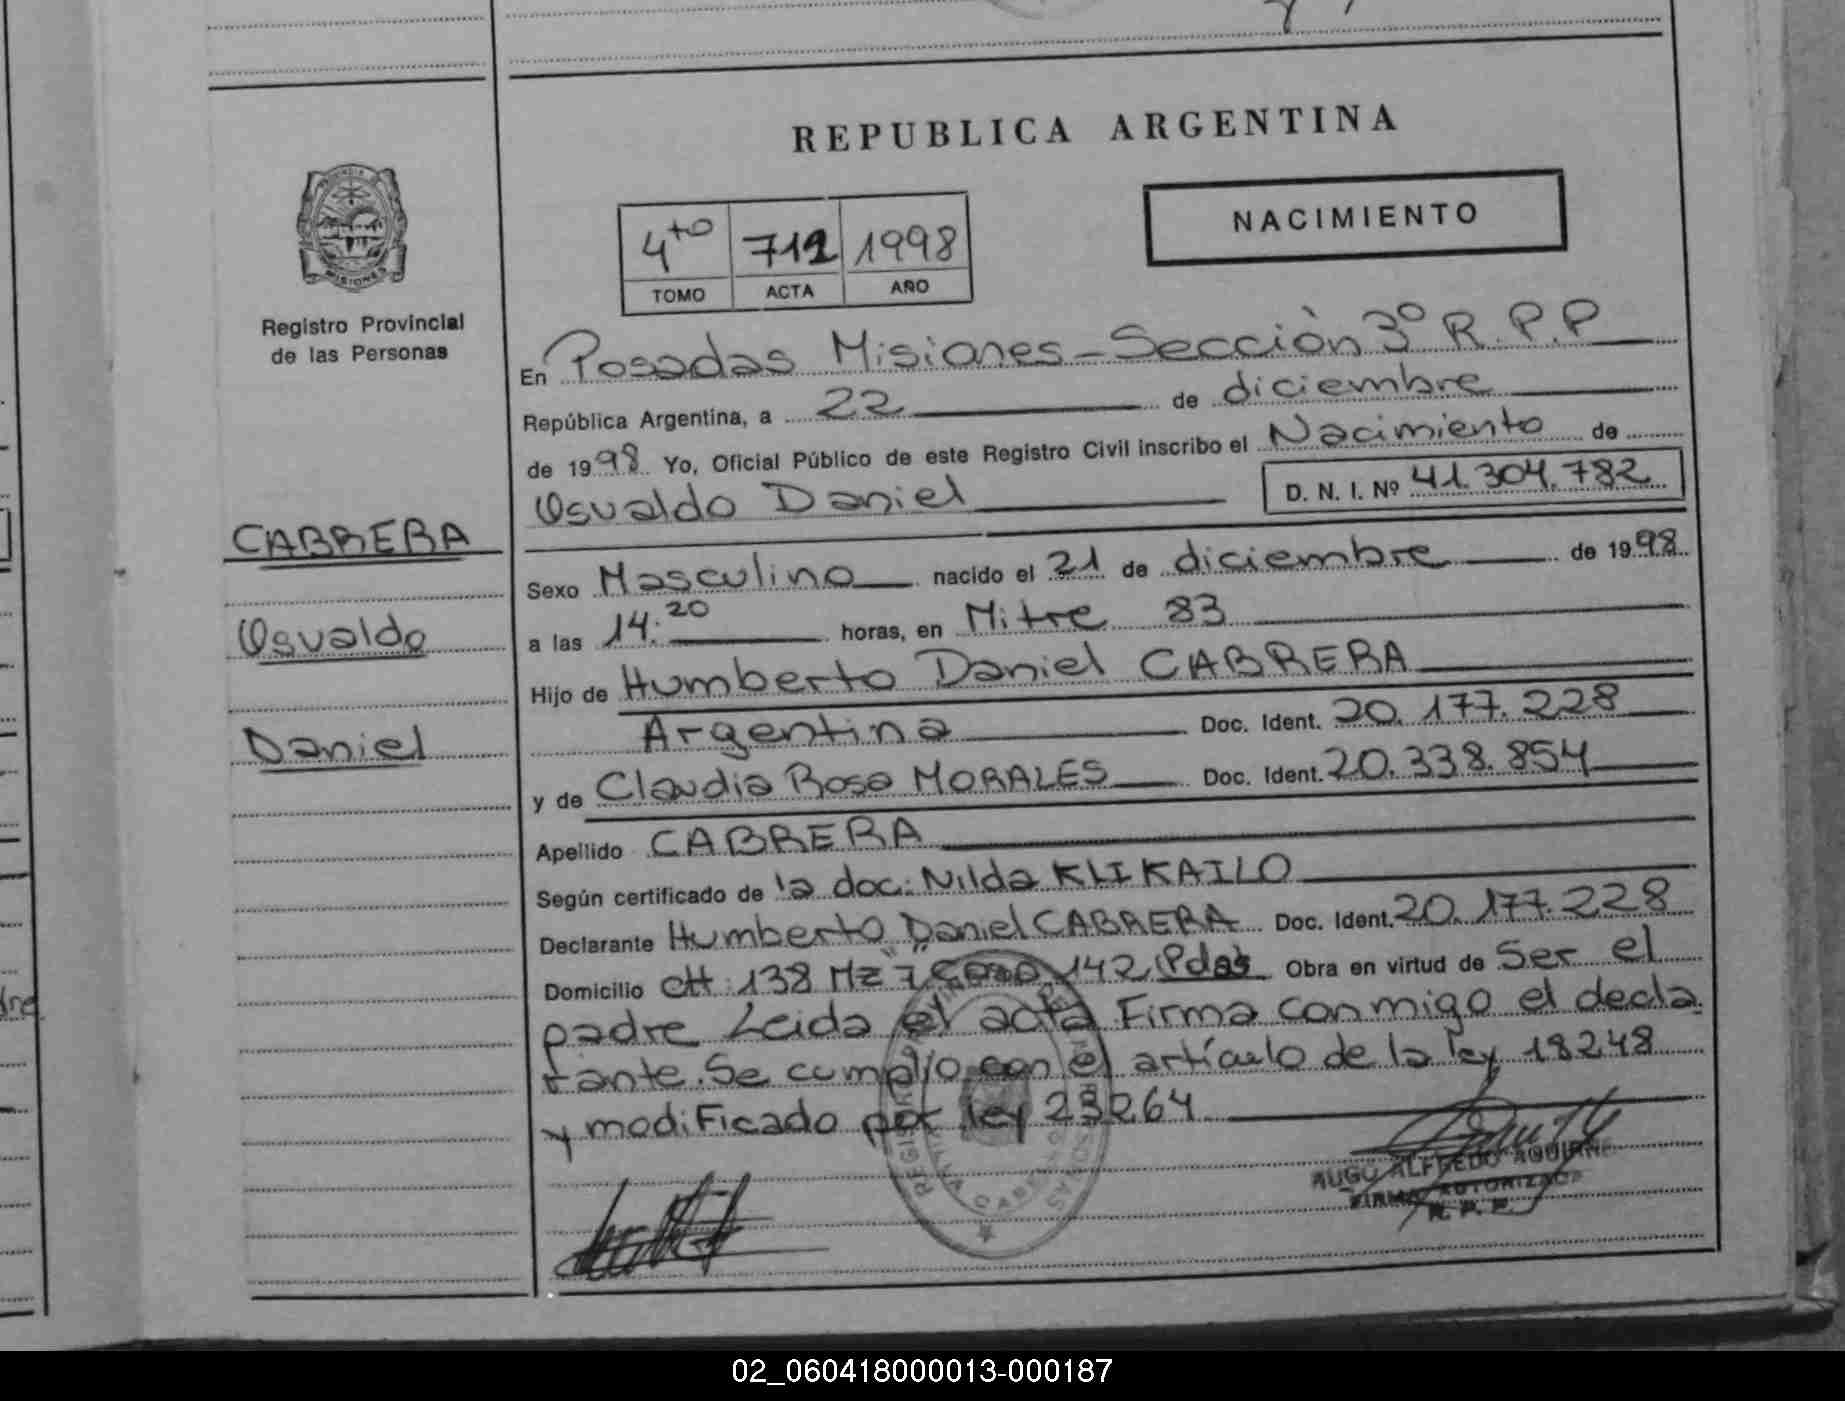 REPUBLICA ARGENTINA
NACIMIENTO
4to 712 1998
TOMO ACTA AÑO
PROVINCIA DE
MISIONES
Registro Provincial
de las Personas
En Posadas Misiones - Sección 3° R.P.P
República Argentina, a 22 de diciembre
de 1998 Yo, Oficial Público de este Registro Civil inscribo el Nacimiento de
Osvaldo Daniel D. N. I. Nº 41.304.782
CABRERA
Sexo Masculino nacido el 21 de diciembre de 1998
Osvaldo
a las 14:20 horas, en Mitre 83
Hijo de Humberto Daniel CABRERA
Daniel
Argentina Doc. Ident. 20.177.228
y de Claudia Rosa MORALES Doc. Ident. 20.338.854
Apellido CABRERA
Según certificado de la doc: Nilda KLIKAILO
Declarante Humberto Daniel CABRERA Doc. Ident. 20.177.228
Domicilio CH 138 Mz "7" Casa 142 Pdas Obra en virtud de Ser el
padre Leida el acta Firma conmigo el decla
rante. Se cumplio con el artículo de la ley 18248
y modificado por ley 23264
HUGO ALFREDO AGUIRRE
FIRMA AUTORIZADA
R. P. P.
dre
02_060418000013-000187